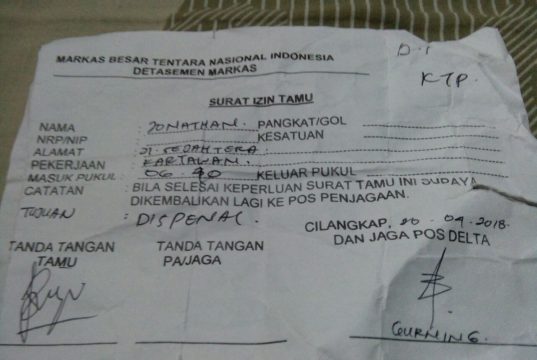 MARKAS BESAR TENTARA NASIONAL INDONESIA
DETASEMEN MARKAS
D.1
KTP.
SURAT IZIN TAMU
NAMA : JONATHAN. PANGKAT/GOL
NRP/NIP KESATUAN
ALAMAT : Jl. SEJAHTERA
PEKERJAAN : KARYAWAN.
MASUK PUKUL : 06 KELUAR PUKUL
CATATAN : BILA SELESAI KEPERLUAN SURAT TAMU INI SUPAYA
DIKEMBALIKAN LAGI KE POS PENJAGAAN.
TUJUAN : DISPENAL.
CILANGKAP, 20 - 04 - 2018
DAN JAGA POS DELTA
TANDA TANGAN
TAMU
TANDA TANGAN
PA/JAGA